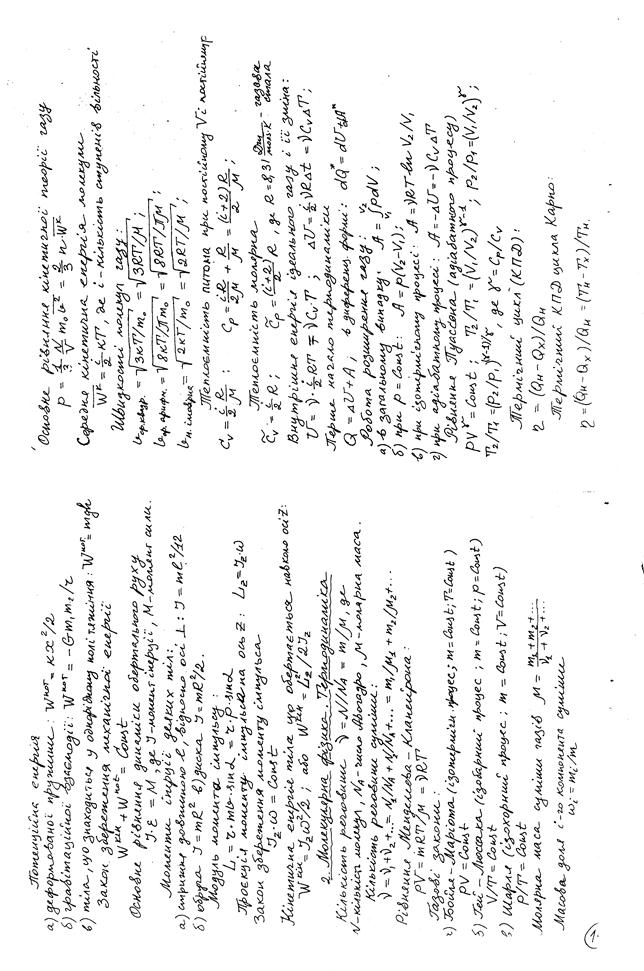 Потенційна енергія
а) деформованої пружини: Wпот = кx²/2
б) гравітаційної взаємодії: Wпот = -Gm₁m₂/r
в) тіла, що знаходиться у однорідному полі тяжіння: Wпот = mgh
Закон збереження механічної енергії
Wкін + Wпот = Const
Основне рівняння динаміки обертального руху
J·ε = M, де J-момент інерції, M-момент сили.
Моменти інерції деяких тіл:
а) стрижня довжиною l, відносно осі ⊥: J = ml²/12
б) обруча J = mR² в) диска J = mR²/2.
Модуль момента імпульсу:
L = r·mv·sinα = r·p·sinα
Проекція моменту імпульса на ось Z: Lz = Jz·ω
Закон збереження моменту імпульса
Jz·ω = Const
Кінетична енергія тіла що обертається навколо осі Z:
Wкін = Jzω²/2; або Wкін = Lz²/2Jz
2. Молекулярна фізика. Термодинаміка
Кількість речовини ν = N/NA = m/μ, де
N-кількість молекул, NA-число Авогадро, μ-молярна маса.
Кількість речовини суміші:
ν = ν₁+ν₂+... = N₁/NA + N₂/NA+... = m₁/μ₁ + m₂/μ₂+...
Рівняння Менделєєва-Клапейрона:
PV = mRT/μ = νRT
Газові закони:
Бойля-Маріота (ізотерміч. процес; m=Const; T=Const)
PV = Const
б) Гей-Люссака (ізобарний процес; m = Const; p=Const)
V/T = Const
в) Шарля (ізохорний процес; m = Const; V=Const)
P/T = Const
Молярна маса суміші газів μ = m₁+m₂+.../ν₁+ν₂+...
Масова доля i-го компонента суміші
ωi = mi/m
1.
Основне рівняння кінетичної теорії газу
P = 1/3 N/V m₀v² = 2/3 n·Wк
Середня кінетична енергія молекули
Wк = i/2 кT, де i-кількість ступенів вільності
Швидкості молекул газу:
vср.квадр. = √3кT/m₀ = √3RT/μ;
vср.арифм. = √8кT/πm₀ = √8RT/πμ;
vн.імовірна = √2кT/m₀ = √2RT/μ;
Теплоємність питома при постійному V і постійному P
Cv = i/2 R/μ; Cp = iR/2μ + R/μ = (i+2)/2 R/μ;
Теплоємність молярна
Cv = i/2 R; Cp = (i+2)/2 R, де R=8,31 Дж/моль·К - газова стала
Внутрішня енергія ідеального газу і її зміна:
U = ν·i/2 RT = νCvT; ΔU = i/2 νRΔt = νCvΔT
Перше начало термодинаміки
Q = ΔU+A, в диференц. формі: dQ* = dU+dA*
Робота розширення газу:
а) в загальному випадку A = ∫PdV;
б) при p=Const: A = p(V₂-V₁);
в) при ізотермічному процесі: A = νRT·ln V₂/V₁
г) при адіабатному процесі: A = -ΔU = -νCvΔT
Рівняння Пуассона (адіабатного процесу)
PVγ = Const; T₂/T₁ = (V₁/V₂)γ-1; P₂/P₁ = (V₁/V₂)γ;
T₂/T₁ = (P₂/P₁)(γ-1)/γ де γ = Cp/Cv
Термічний цикл (КПД):
η = (Qн-Qх)/Qн
Термічний КПД цикла Карно:
η = (Qн-Qх)/Qн = (Tн-Tх)/Tн.